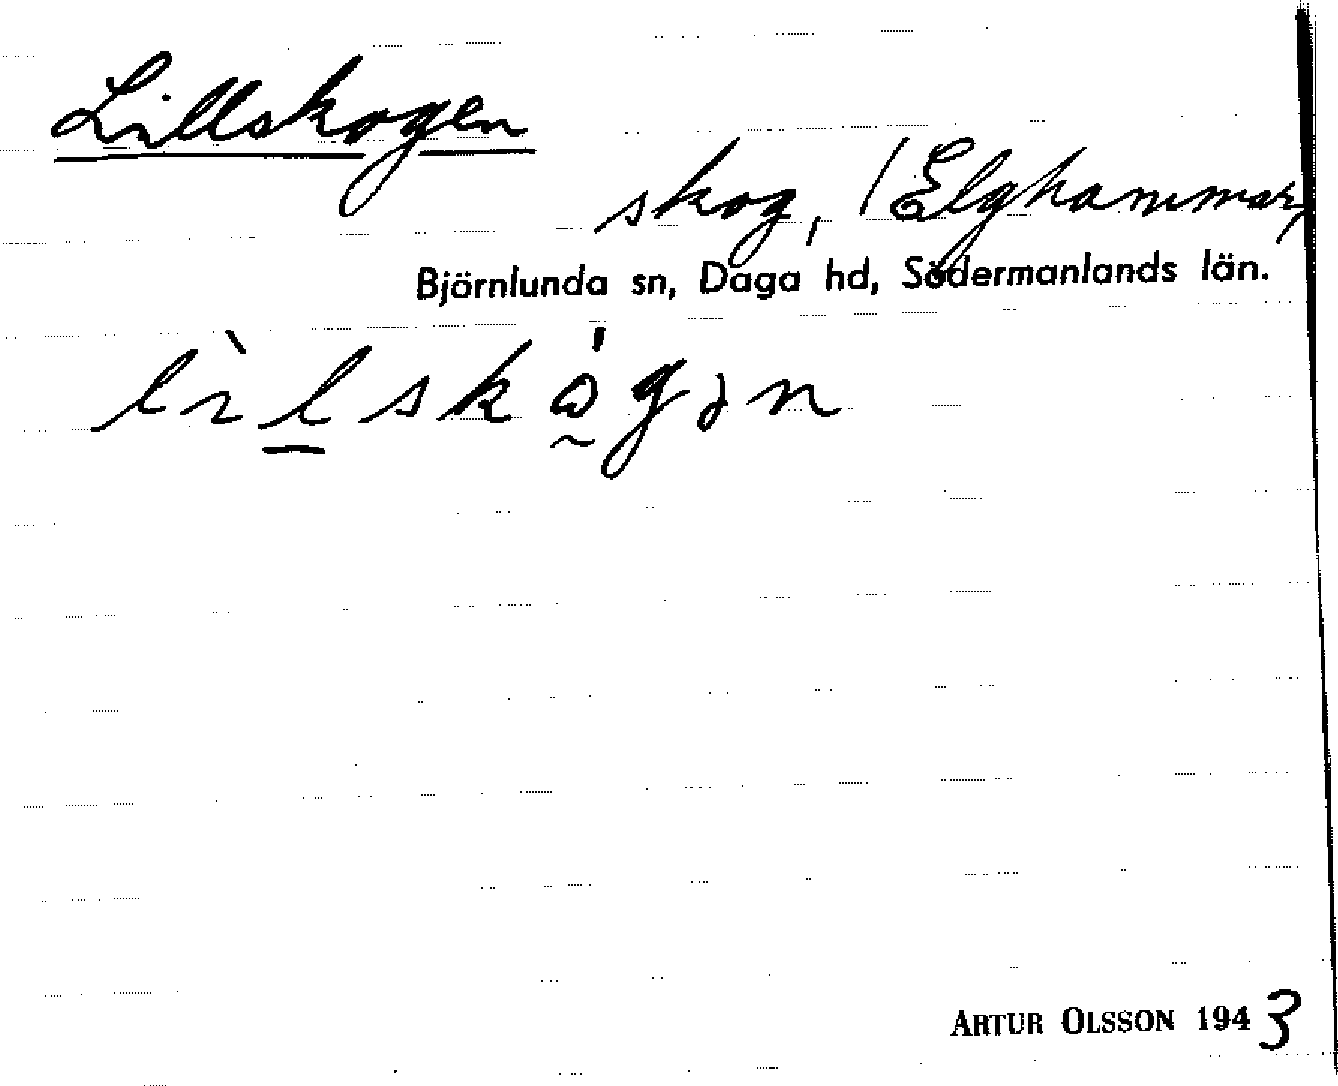 Lillskogen
skog, (Elghammar)
Björnlunda sn, Daga hd, Södermanlands län.
lìlskὼgən
ARTUR OLSSON 1943